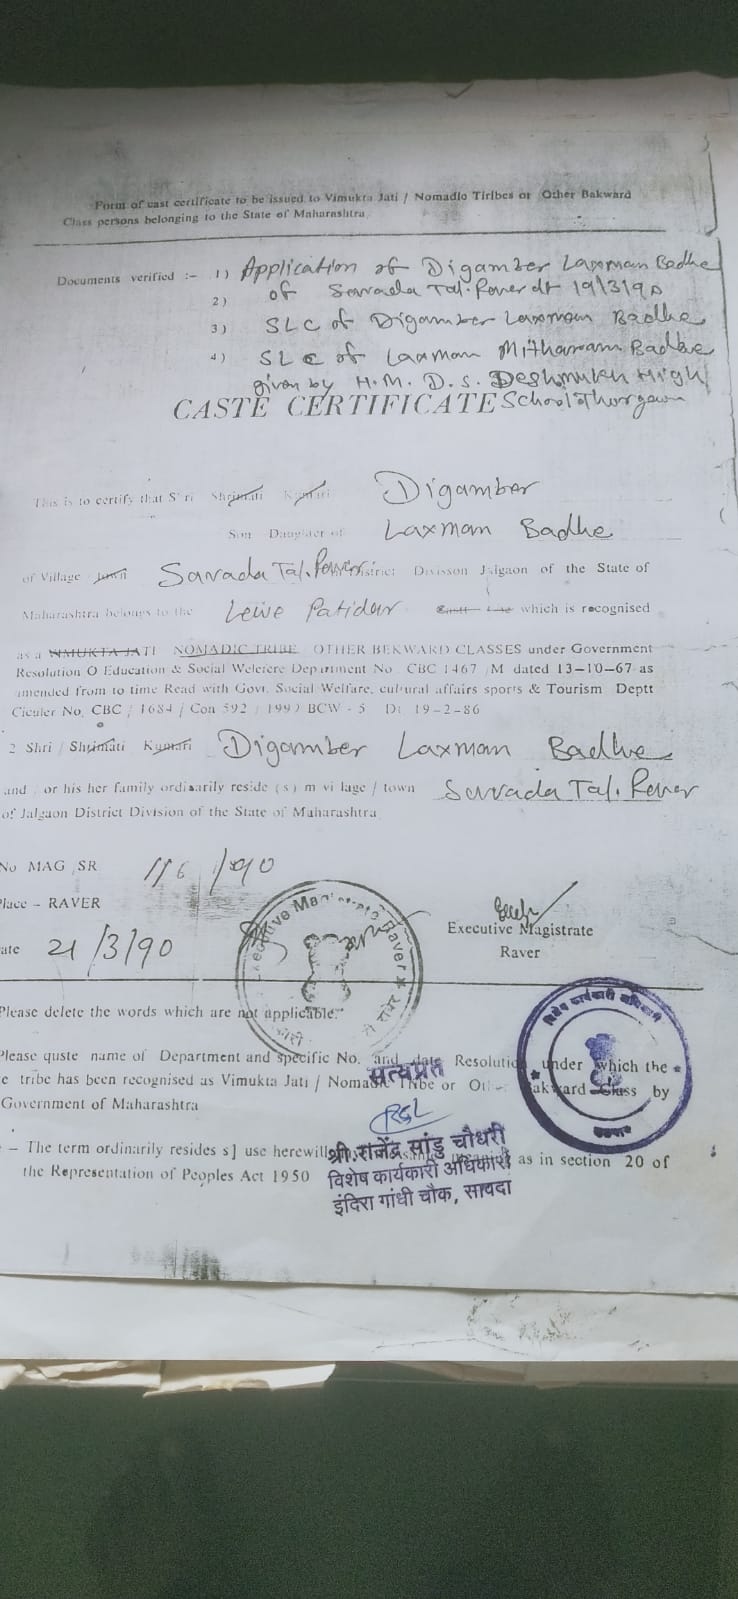 Form of cast certificate to be issued to Vimukta Jati / Nomadio Tiribes or Other Bakward
Class persons belonging to the State of Maharashtra
Documents verified :- 1) Application of Digamber Laxman Badhe
2) of Savada Tal. Raver dt 19/3/90
3) SLC of Digamber Laxman Badhe
4) SLC of Laxman Mitharam Badhe
given by H.M. D.S. Deshmukh High
CASTE CERTIFICATE School Thorgavn
This is to certify that Shri Shrimati Kumari Digamber
Son Daughter of Laxman Badhe
of Village town Savada Tal. Raver District Divisson Jalgaon of the State of
Maharashtra belongs to the Lewe Patidar which is recognised
as a VIMUKTA JATI NOMADIC TRIBE OTHER BEKWARD CLASSES under Government
Resolution O Education & Social Welefere Department No CBC 1467 /M dated 13-10-67 as
amended from to time Read with Govt. Social Welfare, cultural affairs sports & Tourism Deptt
Ciculer No. CBC / 1684 / Con 592 / 1992 BCW - 5 Dt 19-2-86
2 Shri / Shrimati Kumari Digamber Laxman Badhe
and / or his her family ordisarily reside (s) m vi lage / town Savada Tal. Raver
of Jalgaon District Division of the State of Maharashtra
No MAG SR 116/90
Place - RAVER
Executive Magistrate Raver
Executive Magistrate
ate 21/3/90
Raver
Please delete the words which are not applicable.
विशेष कार्यकारी अधिकारी
Please quste name of Department and specific No. and date Resolution under which the
e tribe has been recognised as Vimukta Jati / Nomadic Tribe or Other Bakward Class by
Government of Maharashtra
सत्यप्रत
- The term ordinarily resides s] use herewill as in section 20 of
the Representation of Peoples Act 1950
श्री. राजेंद्र सांडु चौधरी
विशेष कार्यकारी अधिकारी
इंदिरा गांधी चौक, सावदा